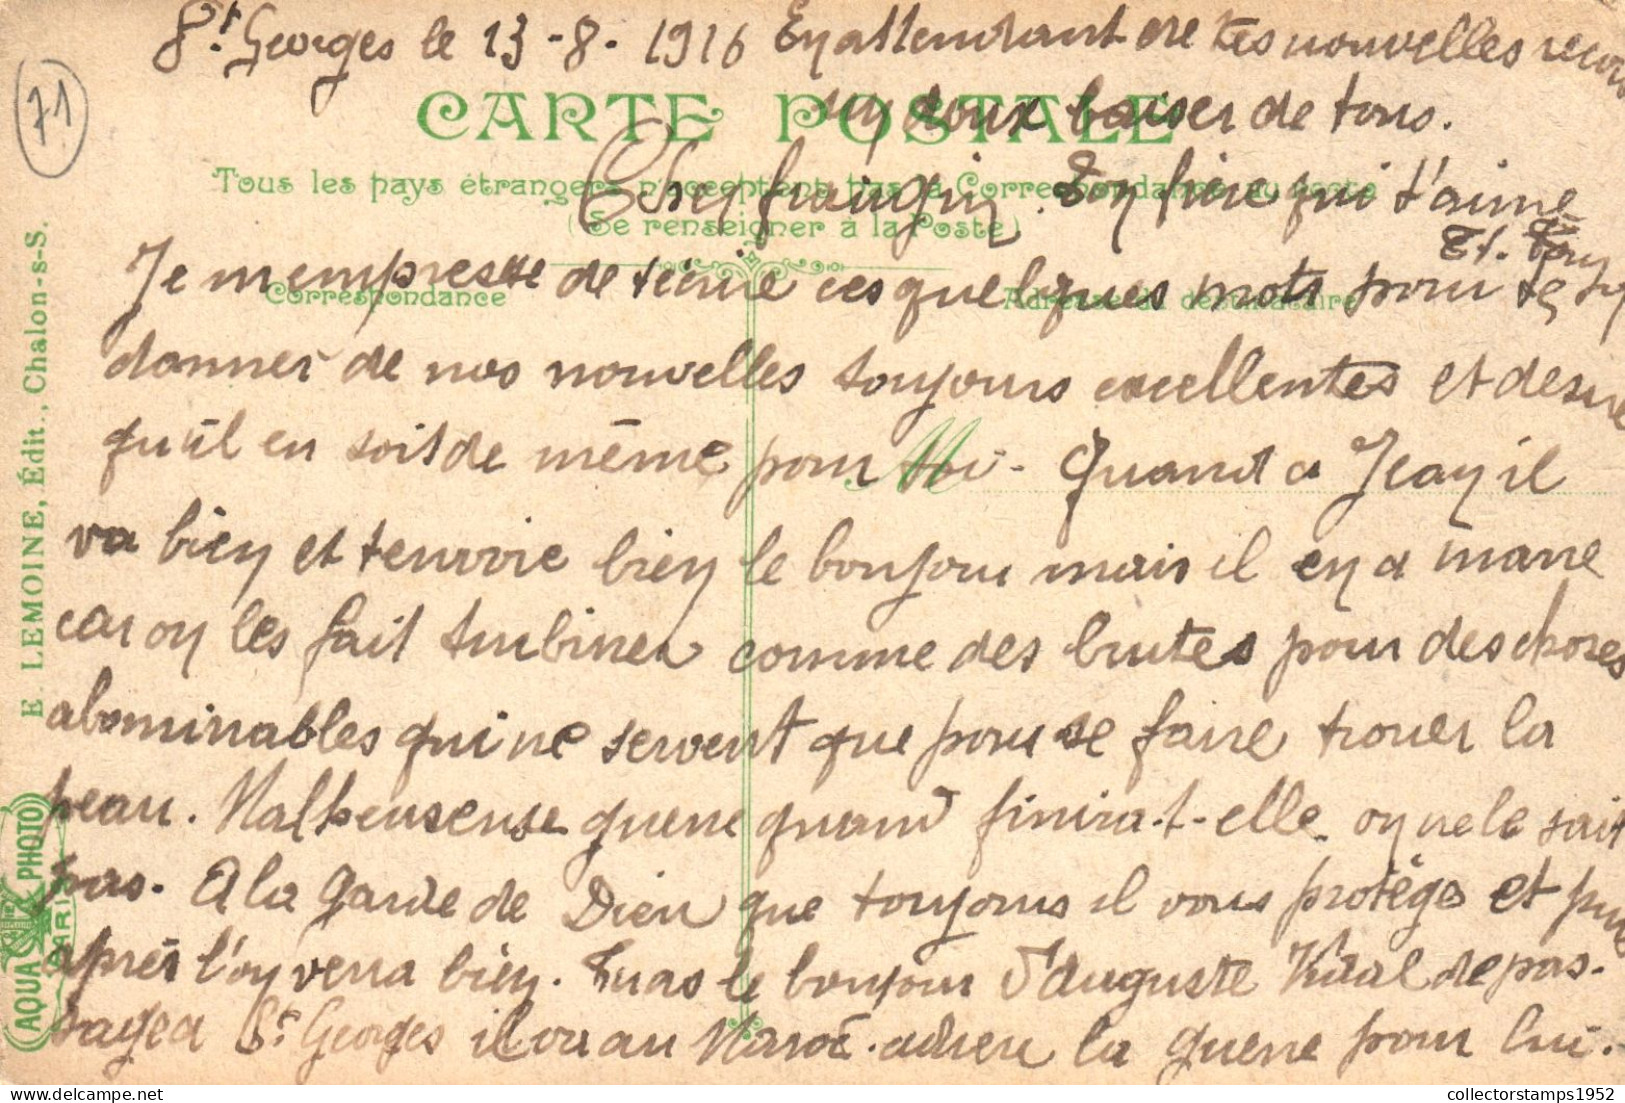 71
St Georges le 13-8-1916 En attendant de tes nouvelles recois
un doux baiser de tous.
CARTE POSTALE
Tous les pays étrangers n'acceptent pas la Correspondance au recto
(Se renseigner à la Poste)
Cher frangin Ton frère qui t'aime
Je m'empresse de t'écrire ces quelques mots pour te
Correspondance
Adresse du destinataire
donner de nos nouvelles toujours excellentes et desire
qu'il en soit de même pour toi - Quand a Jean il
M
va bien et t'envoie bien le bonjour mais il en a marre
car on les fait turbiner comme des brutes pour des choses
abominables qui ne servent que pour se faire trouer la
peau. Malheureuse guerre quand finira-t-elle on ne le sait
pas. A la Garde de Dieu que toujours il vous protège et puis
après l'on verra bien. Tu as le bonjour d'Auguste Vidal de pas-
sage a St Georges il va au Maroc. adieu la guerre pour lui.
E. LEMOINE, Édit., Chalon-s-S.
AQUA PHOTO
PARIS
collectorstamps1952